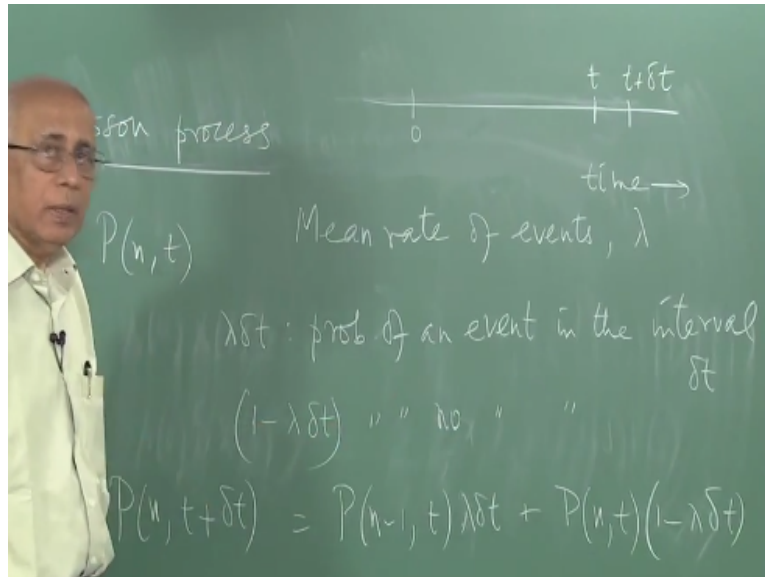 sson process
t t+δt
0
time →
P(n, t)
Mean rate of events, λ
λδt : prob. of an event in the interval
δt
(1 - λδt) " " no " "
P(n, t+δt) = P(n-1, t) λδt + P(n, t)(1 - λδt)